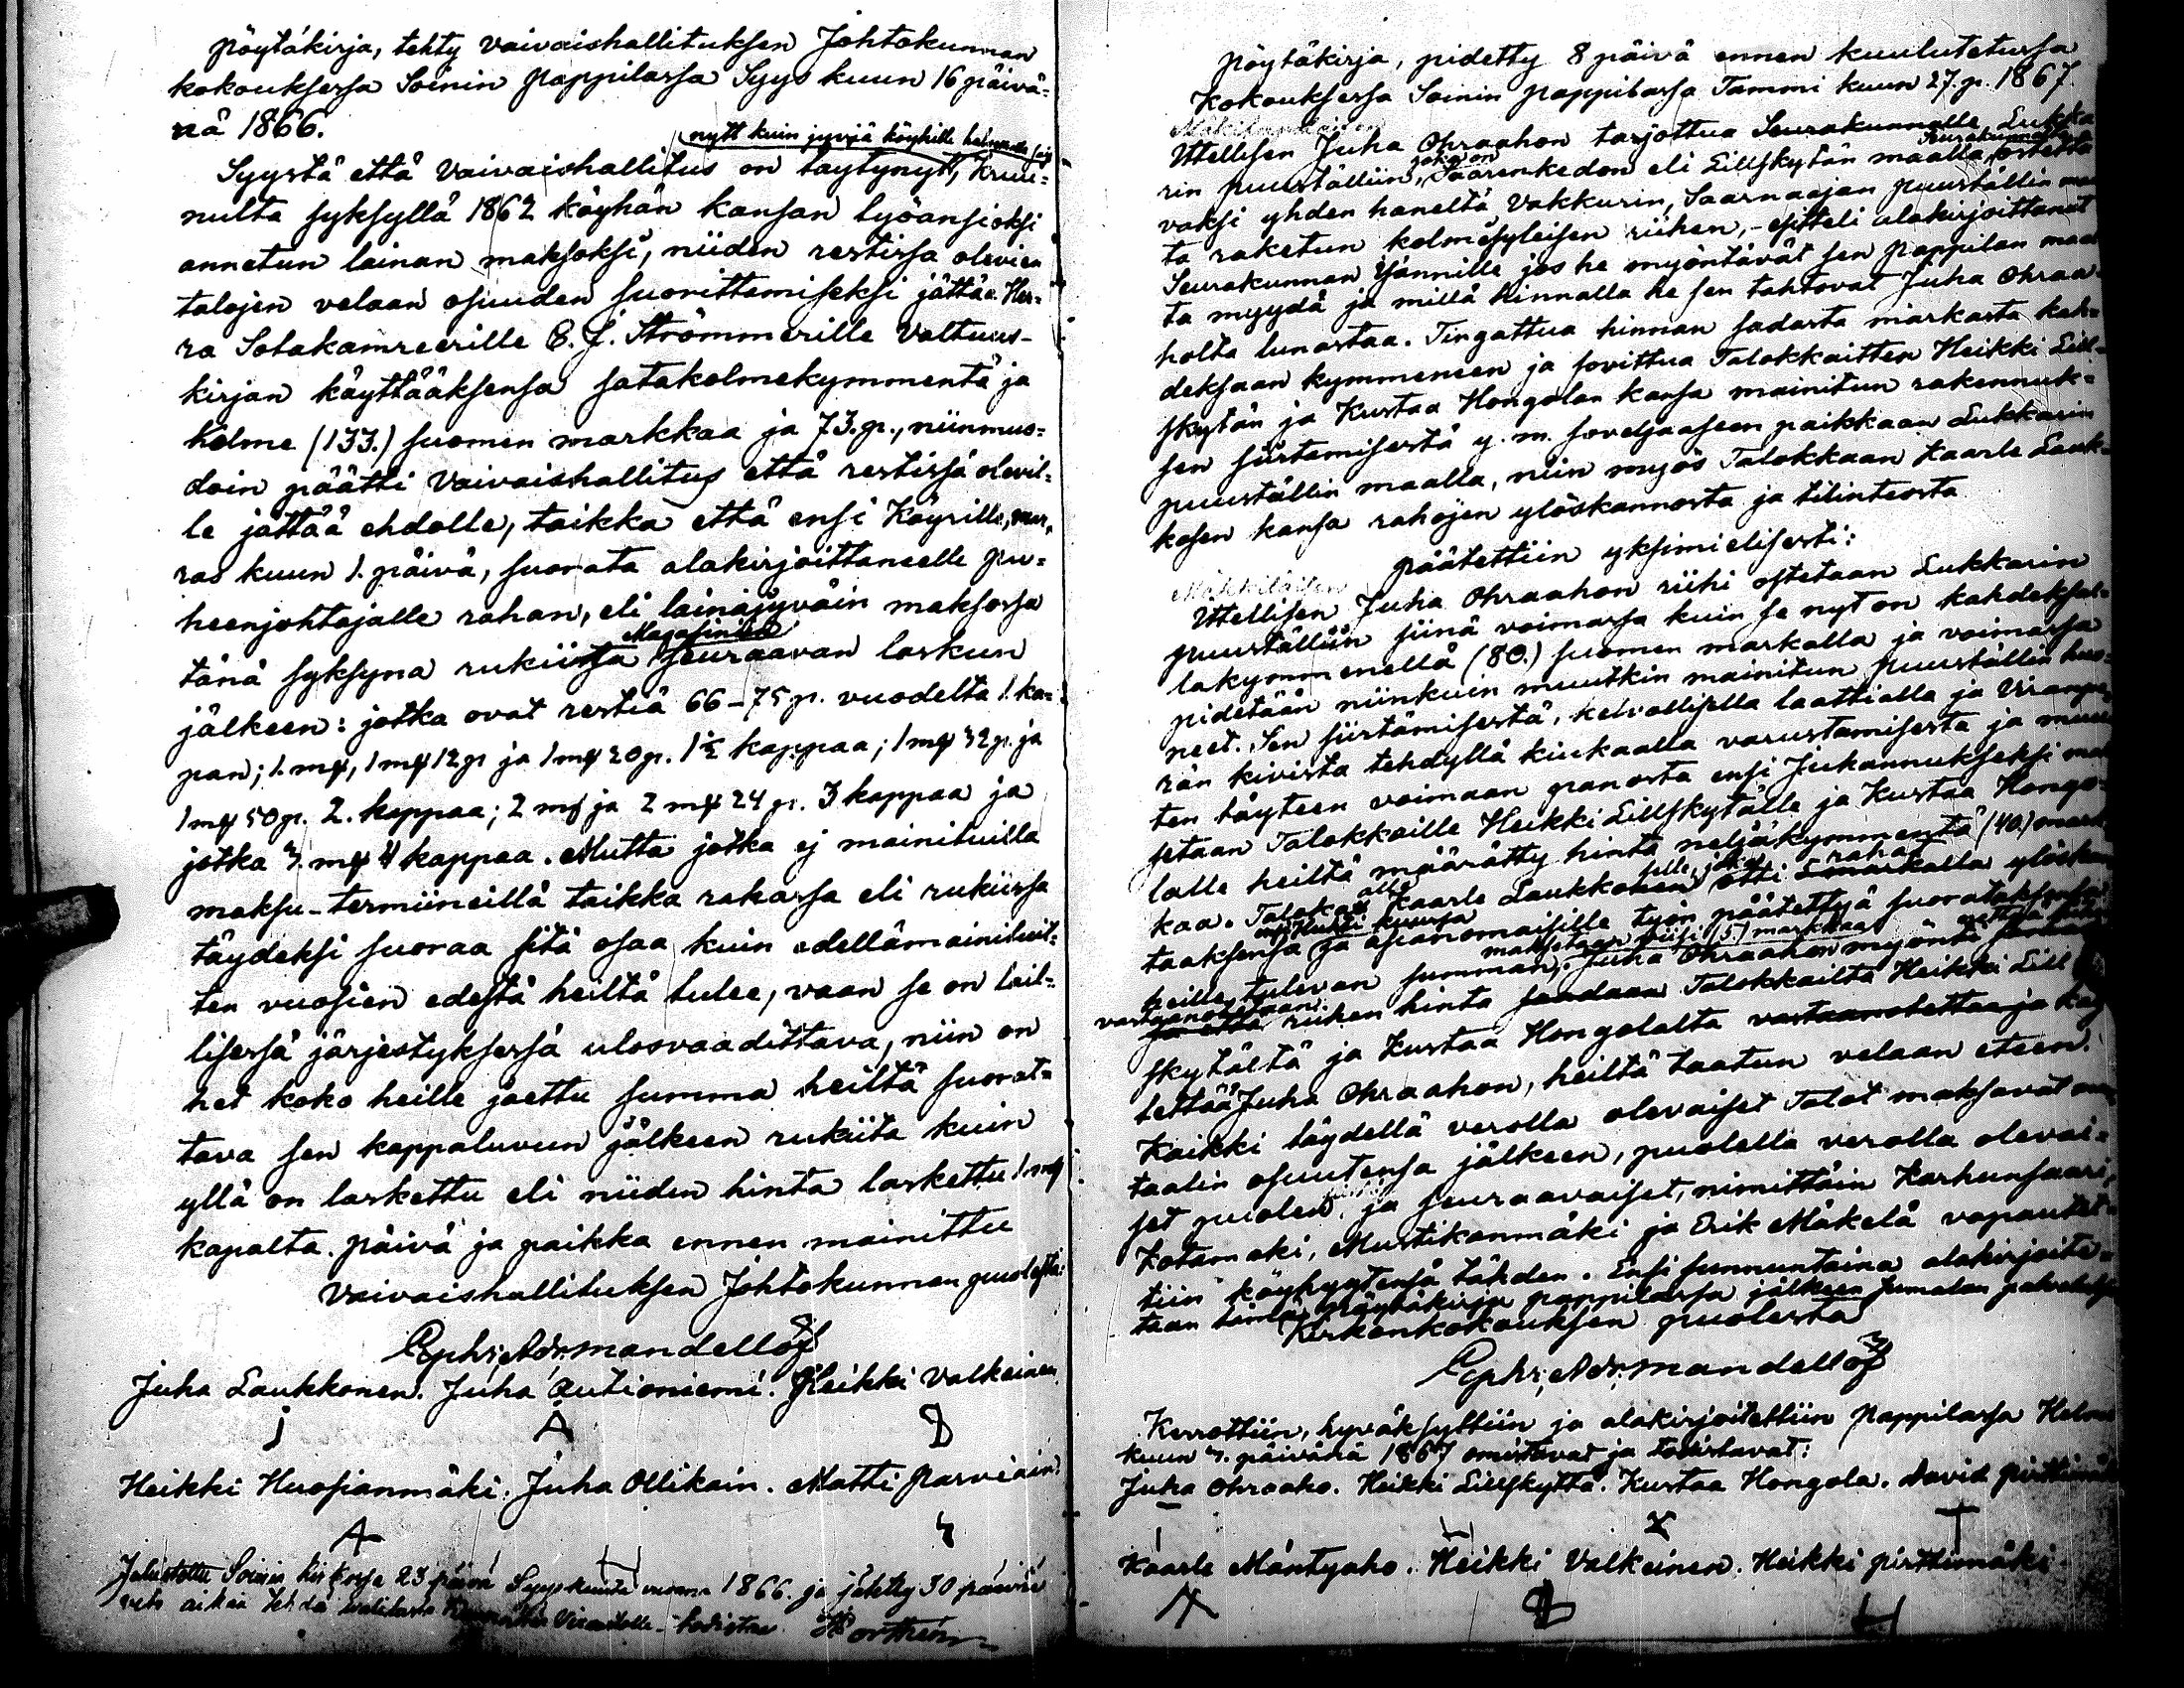 Pöytäkirja, tehty Vaivaishallituksen Johtokunnan
kokouksesa Soinin Pappilassa Syys kuun 16 päivä-
nä 1866.
nytt kuin jyvjä köyhille
Syystä että Vaivaishallitus on täytynytt, Kruu-
nulta syksyllä 1862 köyhän kansan työansioksi
annetun lainan maksoksi, niiden restissa olevien
talojen velaan osuuden suorittamiseksi jättää Her-
ra Sotakamreerille C. J. Strömmerille Valtuus-
kirjan käyttääksensä satakolmekymmentä ja
kolme (133.) suomen markkaa ja 73. p., niinmuo-
doin päätti Vaivaishallitus että restissä olevil-
le jättää ehdolle, taikka että ensi Köyrille, mar-
ras kuun 1. päivä, suorata alakirjoittaneelle pu-
heenjohtajalle rahan, eli lainajyväin maksossa
Magasinien
tänä syksynä rukiissa seuraavan laskun
jälkeen: jotka ovat restiä 66-75 p. vuodelta 1. ka-
pan; 1. mk, 1 mk 12 p ja 1 mk 20 p. 1½ kappaa; 1 mk 32 p. ja
1 mk 50 p. 2. kappaa; 2 mk ja 2 mk 24 p. 3 kappaa ja
jotka 3. mk 4 kappaa. Mutta jotka ej mainituilla
maksu-termiineillä taikka rahassa eli rukiissa
täydeksi suoraa sitä osaa kuin edellämainituit-
ten vuosien edestä heiltä tulee, vaan se on lail-
lisessä järjestyksessä ulosvaadittava, niin on
het koko heille jaettu summa heiltä suorat-
tava sen kappaluvun jälkeen rukiita kuin
yllä on laskettu eli niiden hinta laskettu 1 mk
kapalta. Päivä ja paikka ennen mainittu
Vaivaishallituksen Johtokunnan puolesta:
Ephr. Adr. Mandellöf
Juha Laukkonen. Juha Autioniemi. Heikki Valkeinen.
Heikki Huosianmäki. Juha Ollikain. Matti Parviain:
Julistettu Soinin kirkossa 23 päivä Syyskuuta vuonna 1866. ja jätetty 30 päiviä
aikaa tehdä valitusta todistaa
Pöytäkirja, pidetty 8 päivä ennen kuulutetussa
Kokouksessa Soinin Pappilassa Tammi kuun 27. p. 1867.
Uttellisen Juha Ohraahon tarjottua Seurakunnalle Lukka
joka on Seurakunnalta
rin puuställiin, Saarenkedon eli Lillskytän maalla, ostetta
vaksi yhden haneltä Vakkurin, Saarnaajan puuställin maa
ta raketun kolmesyleisen riihen, - esitteli alakirjoittanut
Seurakunnan Jsännille jos he myöntävät sen Pappilan maal
ta myydä ja millä hinnalla he sen tahtovat Juha Ohraa-
holta lunastaa. Tingattua hinnan sadasta markasta kah-
deksaan kymmeneen ja sovittua Talokkaitten Heikki Lill-
skytän ja Kustaa Hongolan kansa mainitun rakennuk-
sen siirtämisestä y. m. soveljaaseen paikkaan Lukkarin
puuställin maalla, niin myös Talokkaan Kaarle Lauk-
kosen kansa rahojen ylöskannosta ja tilinteosta
Päätettiin yksimielisesti:
Uttellisen Juha Ohraahon riihi ostetaan Lukkarin
puuställiin siinä voimassa kuin se nyt on kahdeksal-
lakymmenellä (80.) suomen markalla ja voimassa
pidetään niinkuin muutkin mainitun puuställin huo-
neet. Sen siirtämisestä, kelvollisella laattialla ja
rän kivistä tehdyllä kiukaalla varustamisesta ja muu
ten täyteen voimaan panosta ensi Juhannukseksi
setaan Talokkaille Heikki Lillskytälle ja Kustaa Hongo-
lalle heiltä määrätty hinta neljäkymmentä (40.) mark
kaa. Talokas Kaarle Laukkonen otti 5 markalla ylöska
taaksensa ja asianomaisille työn päätettyä suorataksensa
maksetaan viisi (5) markkaa
heille tulevan summan. Juha Ohraahon myönti
vastaanottavansa
ja että riihen hinta saadaan Talokkailta Heikki Lill
skytältä ja Kustaa Hongolalta vastaanotettaa ja
tettää Juha Ohraahon, heiltä taatun velaan eteen.
Kaikki täydellä verolla olevaiset Talot maksavat
taalin osuutensa jälkeen, puolella verolla olevai-
set puolen, ja seuraavaiset, nimittäin Karhunsaari,
Kotamäki, Mustikanmäki ja Erik Mäkelä vapautet-
tiin köyhyytensä tähden. Ensi sunnuntaina alakirjoite-
taan tämä pöytäkirja pappilassa jälkeen Jumalan palveluksen
Kirkonkokouksen puolesta
Ephr. Adr. Mandellöf
Kerrottiin, hyväksyttiin ja alakirjoitettiin Pappilassa Helmi
kuun 3. päivänä 1867 omistavat ja todistavat:
Juha Ohraaho. Heikki Lillskyttä. Kustaa Hongola. David Pirttimäki
Kaarle Mäntyaho. Heikki Valkeinen. Heikki Pirttimäki